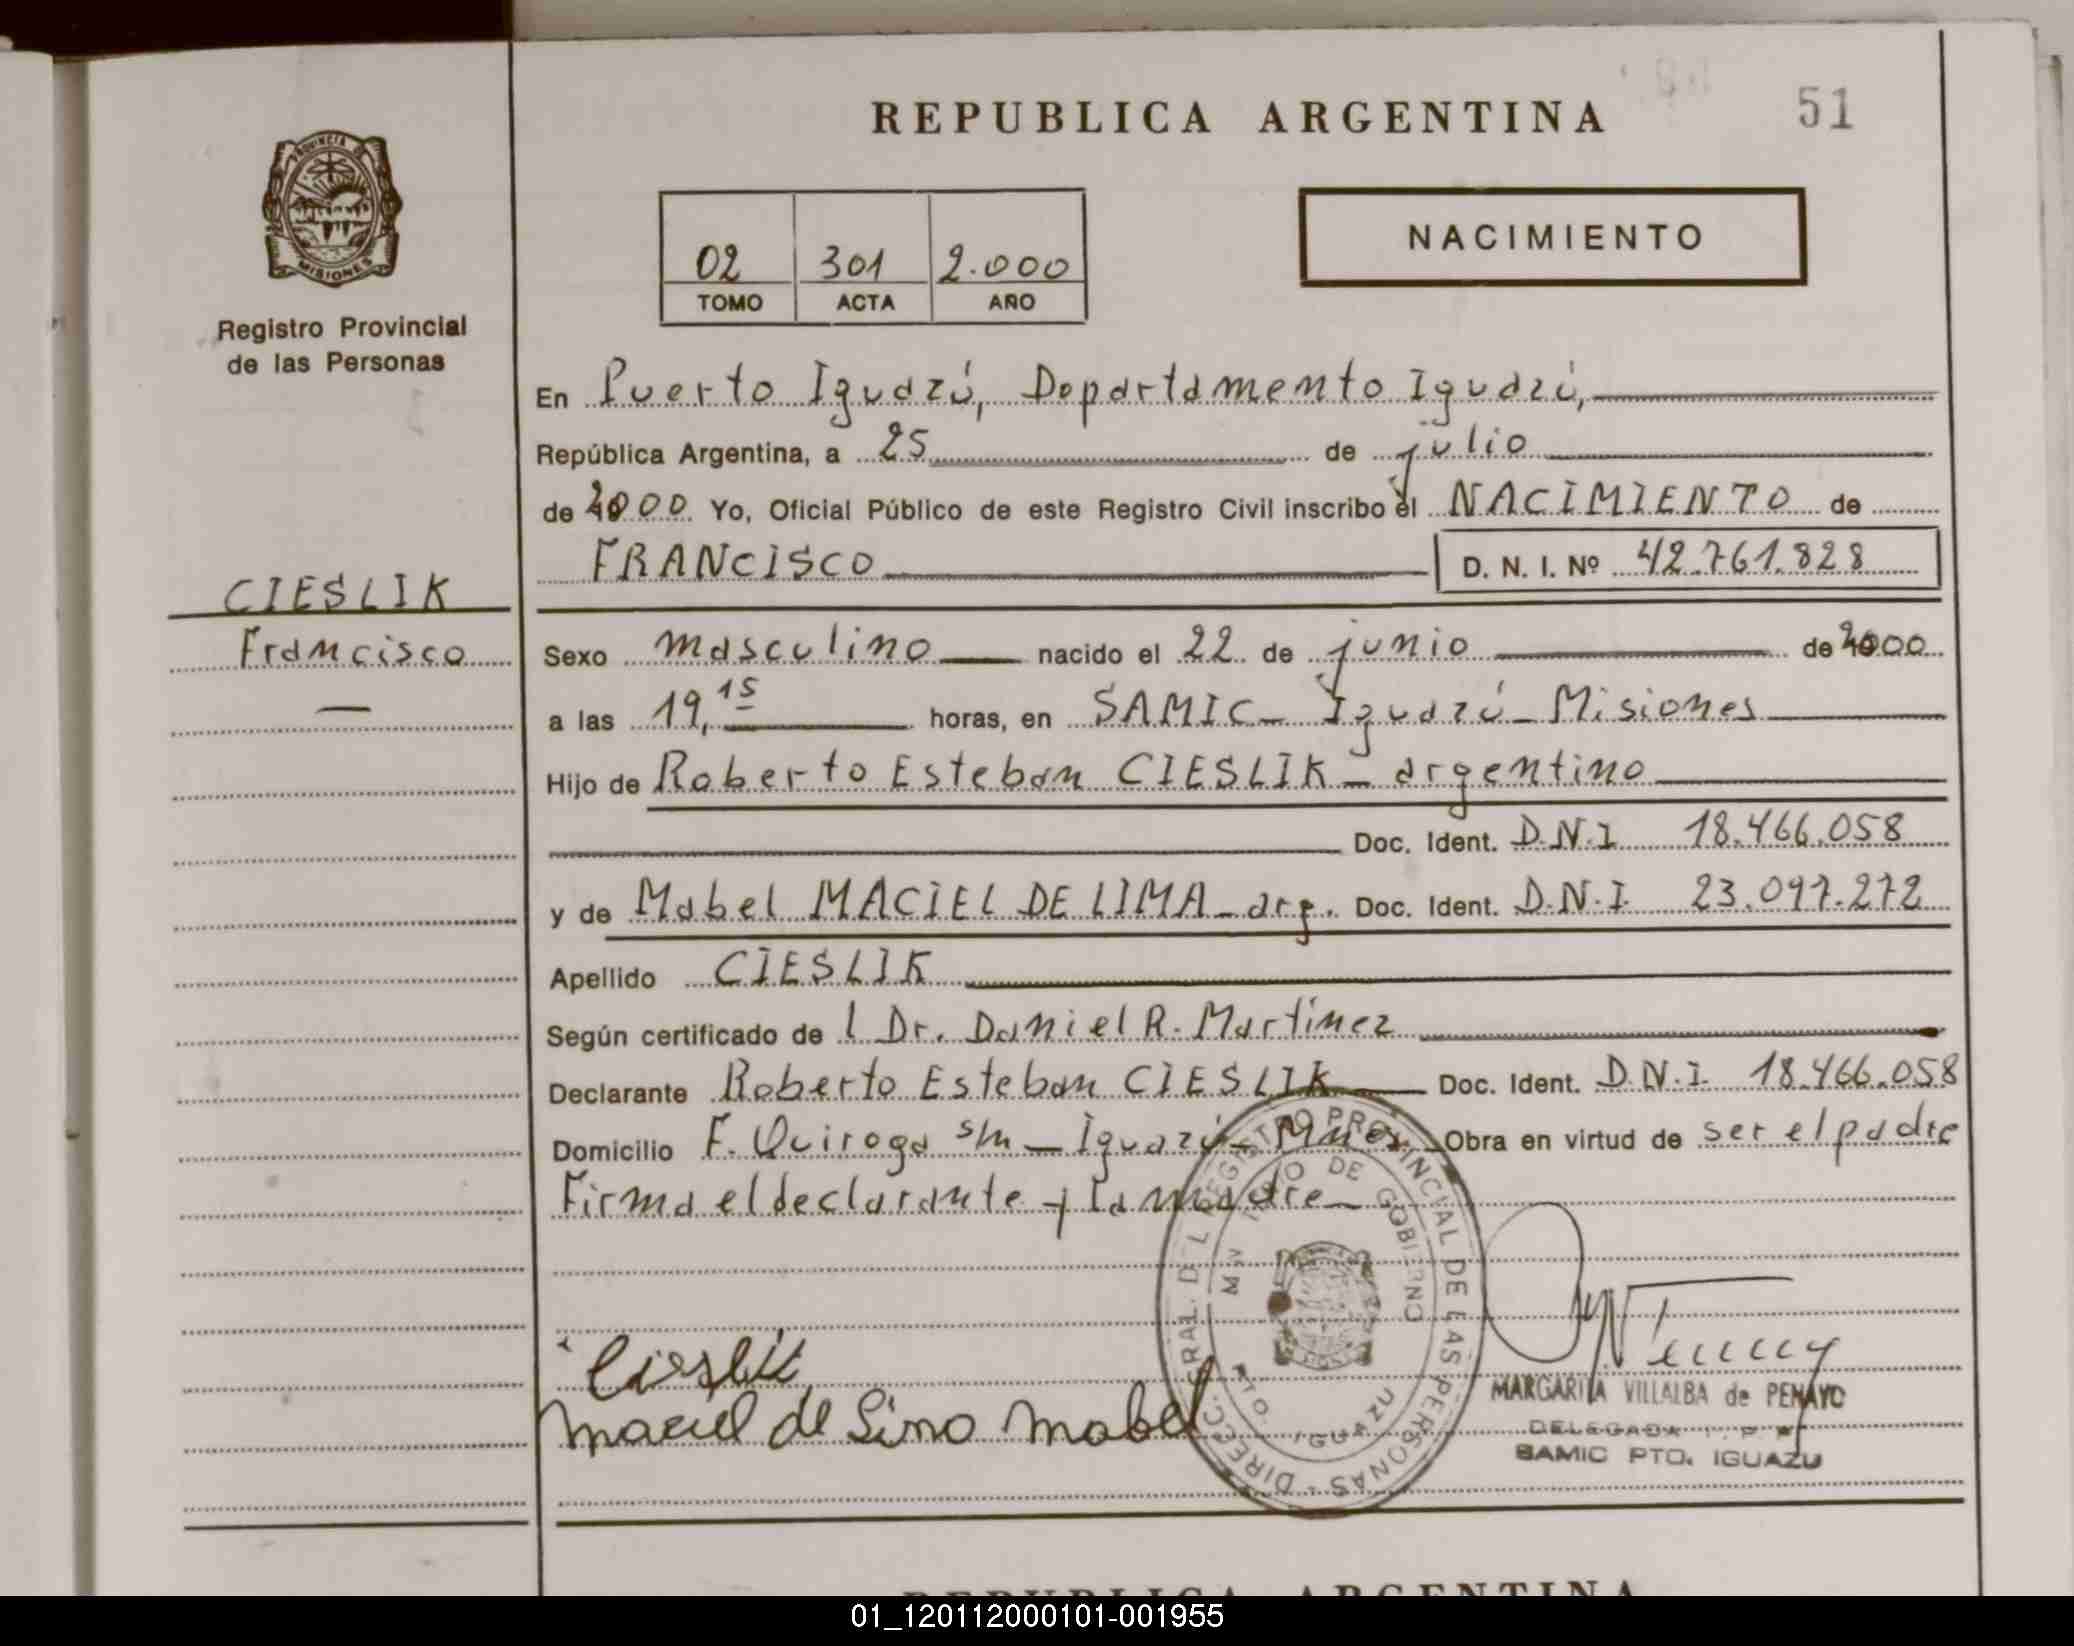 REPUBLICA ARGENTINA
51
PROVINCIA DE
MISIONES
Registro Provincial
de las Personas
02 301 2.000
TOMO ACTA AÑO
NACIMIENTO
En Puerto Iguazú, Departamento Iguazú,
República Argentina, a 25 de julio
de 2000 Yo, Oficial Público de este Registro Civil inscribo el NACIMIENTO de
FRANCISCO D. N. I. Nº 42.761.828
CIESLIK
Francisco
Sexo masculino nacido el 22 de junio de 2000
a las 19,15 horas, en SAMIC - Iguazú - Misiones
Hijo de Roberto Esteban CIESLIK - argentino
Doc. Ident. D.N.I 18.466.058
y de Mabel MACIEL DE LIMA - arg. Doc. Ident. D.N.I. 23.097.272
Apellido CIESLIK
Según certificado de l Dr. Daniel R. Martínez
Declarante Roberto Esteban CIESLIK Doc. Ident. D.N.I. 18.466.058
Domicilio F. Quiroga s/n - Iguazú - Mnes. Obra en virtud de ser el padre
Firma el declarante y la madre
DIRECC. GRAL. DEL REGISTRO PROVINCIAL DE LAS PERSONAS
DE GOBIERNO
PTO. IGUAZU
Cieslik
Maciel de Lima Mabel
MARGARITA VILLALBA de PENAYO
DELEGADA
SAMIC PTO. IGUAZU
REPUBLICA ARGENTINA
01_120112000101-001955